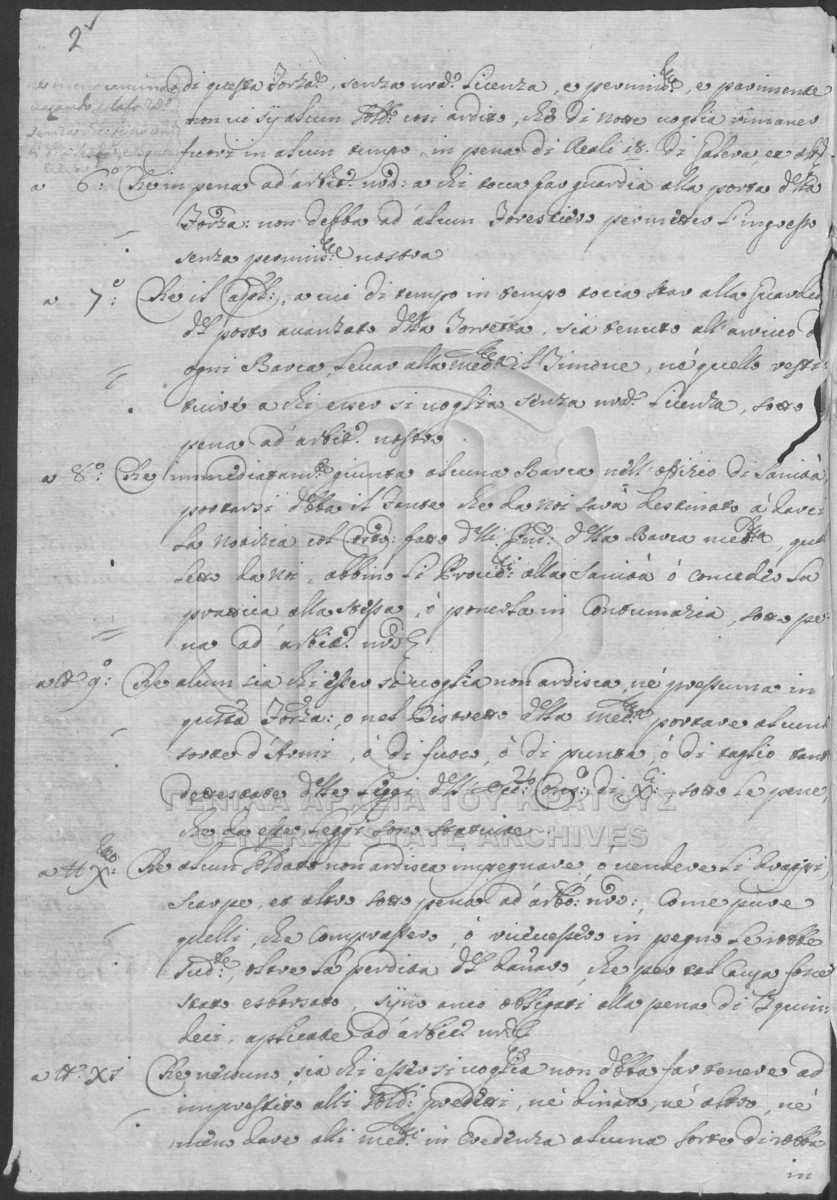 2
di questa Forza, senza nra Licenza, e permis.ne, e parimente
non vi sij alcun Sold: così ardito, che di notte voglia rimaner
fuori in alcun tempo, in pena di Reali di Galera, et
a 6.º Che in pena ad' arbit.º nro: a chi tocca far guardia alla porta della
Forza: non debba ad' alcun Forestiero permetter l'ingresso
senza permis.ne nostra
a 7.º: Che il, a cui di tempo in tempo tocca star alla Guardia
del posto avanzato della Torretta, sia tenuto all' arrivo d
ogni Barca, levar alla med.ma il Timone, nè quello resti-
tuire a chi esser si voglia senza nra Licenza, sotto
pena ad' arbit.º nostro
a 8.º: Che immediatam.te giunta alcuna Barca nell' Offizio di Sanità
portarsi debba il Fante che da Noi sarà destinato à darci
la notizia col Cost.to: fatto della Barca med.ma, qual
letto da Noi, abbino li Proved.i alla Sanità ò conceder la
prattica alla stessa, ò ponerla in Contumazia, sotto pe-
na ad' arbit.º nro
a tt.º 9.º: Che alcun sia chi esser si voglia non ardisca, nè presuma in
questa Forza: o nel Distretto della med.ma portare alcuna
sorte d'Armi, ò di fuoco, ò di punta, ò di taglio tant
detestate dalle Leggi dell' Ecc.so Cons.º: di X.ci sotto le pene,
che da esse Leggi sono statuite
ΓΕΝΙΚΑ ΑΡΧΕΙΑ ΤΟΥ ΚΡΑΤΟΥΣ
GENERAL STATE ARCHIVES
a tt.º X.mo: Che alcun Soldato non ardisca impegnare, ò vendere li
scarpe, et altro sotto pena ad' arb.º: nro:, Come pure
quelli, che comprassero, ò ricevessero in pegno le robbe
sud.te, oltre la perdita del danaro, che per tal causa fosse
stato esborsato, sijno anco obligati alla pena di L quin-
deci, aplicate ad' arbit.º nro
a tt.º XI Che niuno, sia chi esser si voglia non debba far tenere ad
imprestito alli Sold.i predetti, nè dinaro, nè altro, nè
meno dare alli med.mi in credenza alcuna sorte di robba
in